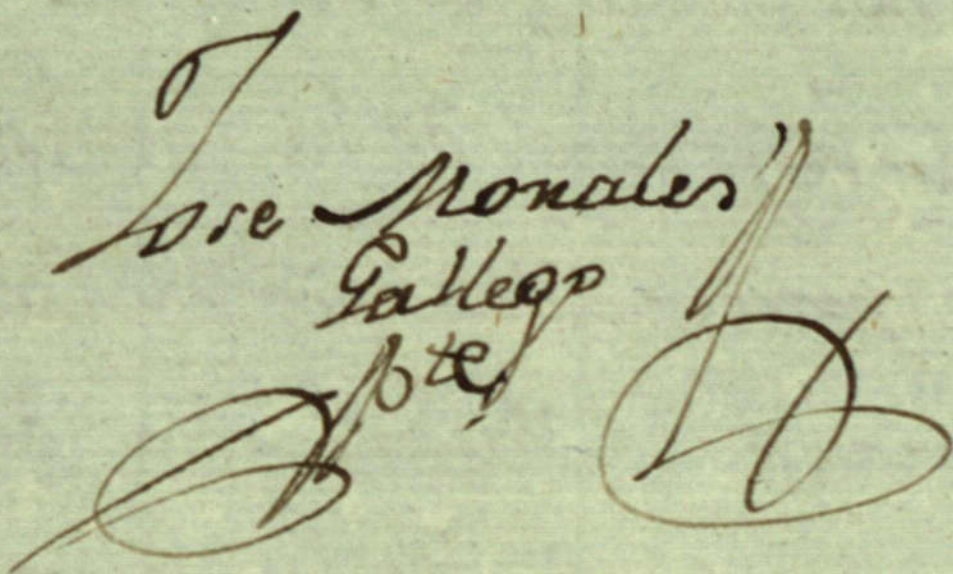 Jose Morales
Gallego
Pte